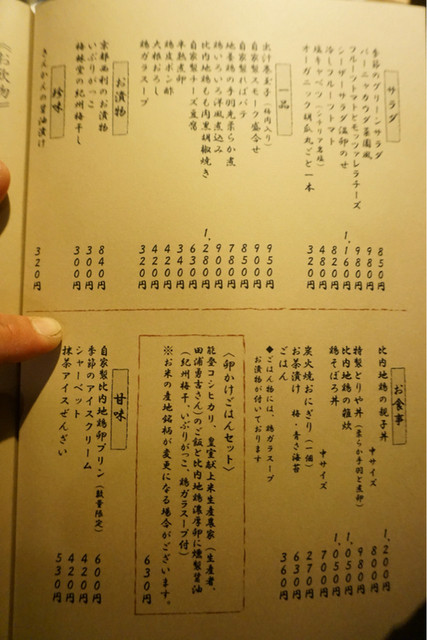 サラダ
季節のグリーンサラダ 850円
バーニャカウダ菜園風 980円
フルーツトマトとモッツァレラチーズ 980円
シーザーサラダ温卵のせ 1,160円
冷しフルーツトマト 820円
塩キャベツ(シチリア岩塩) 480円
オーガニック胡瓜丸ごと一本 320円
一品
出汁巻玉子(梅肉入り) 950円
自家製スモーク盛合せ 900円
自家製ればパテ 850円
地養鶏の手羽先柔らか煮 780円
鶏いろいろ洋風煮込み 900円
比内地鶏もも肉黒胡椒焼き 1,280円
自家製チーズ豆腐 630円
半熟煮卵 340円
鶏皮ポン酢 420円
大根おろし 420円
鶏ガラスープ 320円
お漬物
京都西利のお漬物 840円
いぶりがっこ 300円
梅林堂の紀州梅干し 300円
珍味
きんかんの醤油漬け 320円
お食事
比内地鶏の親子丼 1,200円
中サイズ 800円
特製とりや丼(柔らか手羽と煮卵) 980円
比内地鶏の雑炊 1,050円
鶏そぼろ丼 1,050円
中サイズ 700円
炭火焼おにぎり(一個) 270円
お茶漬け 梅・青さ海苔 630円
ごはん 360円
◆ごはん物には、鶏ガラスープ
お漬物が付いております
〈卵かけごはんセット〉
能登コシヒカリ、皇室献上米生産農家(生産者、
田浦勇吉さん)のご飯と比内地鶏濃厚卵に燻製醤油
(紀州梅干、いぶりがっこ、鶏ガラスープ付)
※お米の産地銘柄が変更になる場合がございます。
630円
甘味
自家製比内地鶏卵プリン(数量限定) 600円
季節のアイスクリーム 420円
シャーベット 420円
抹茶アイスぜんざい 530円